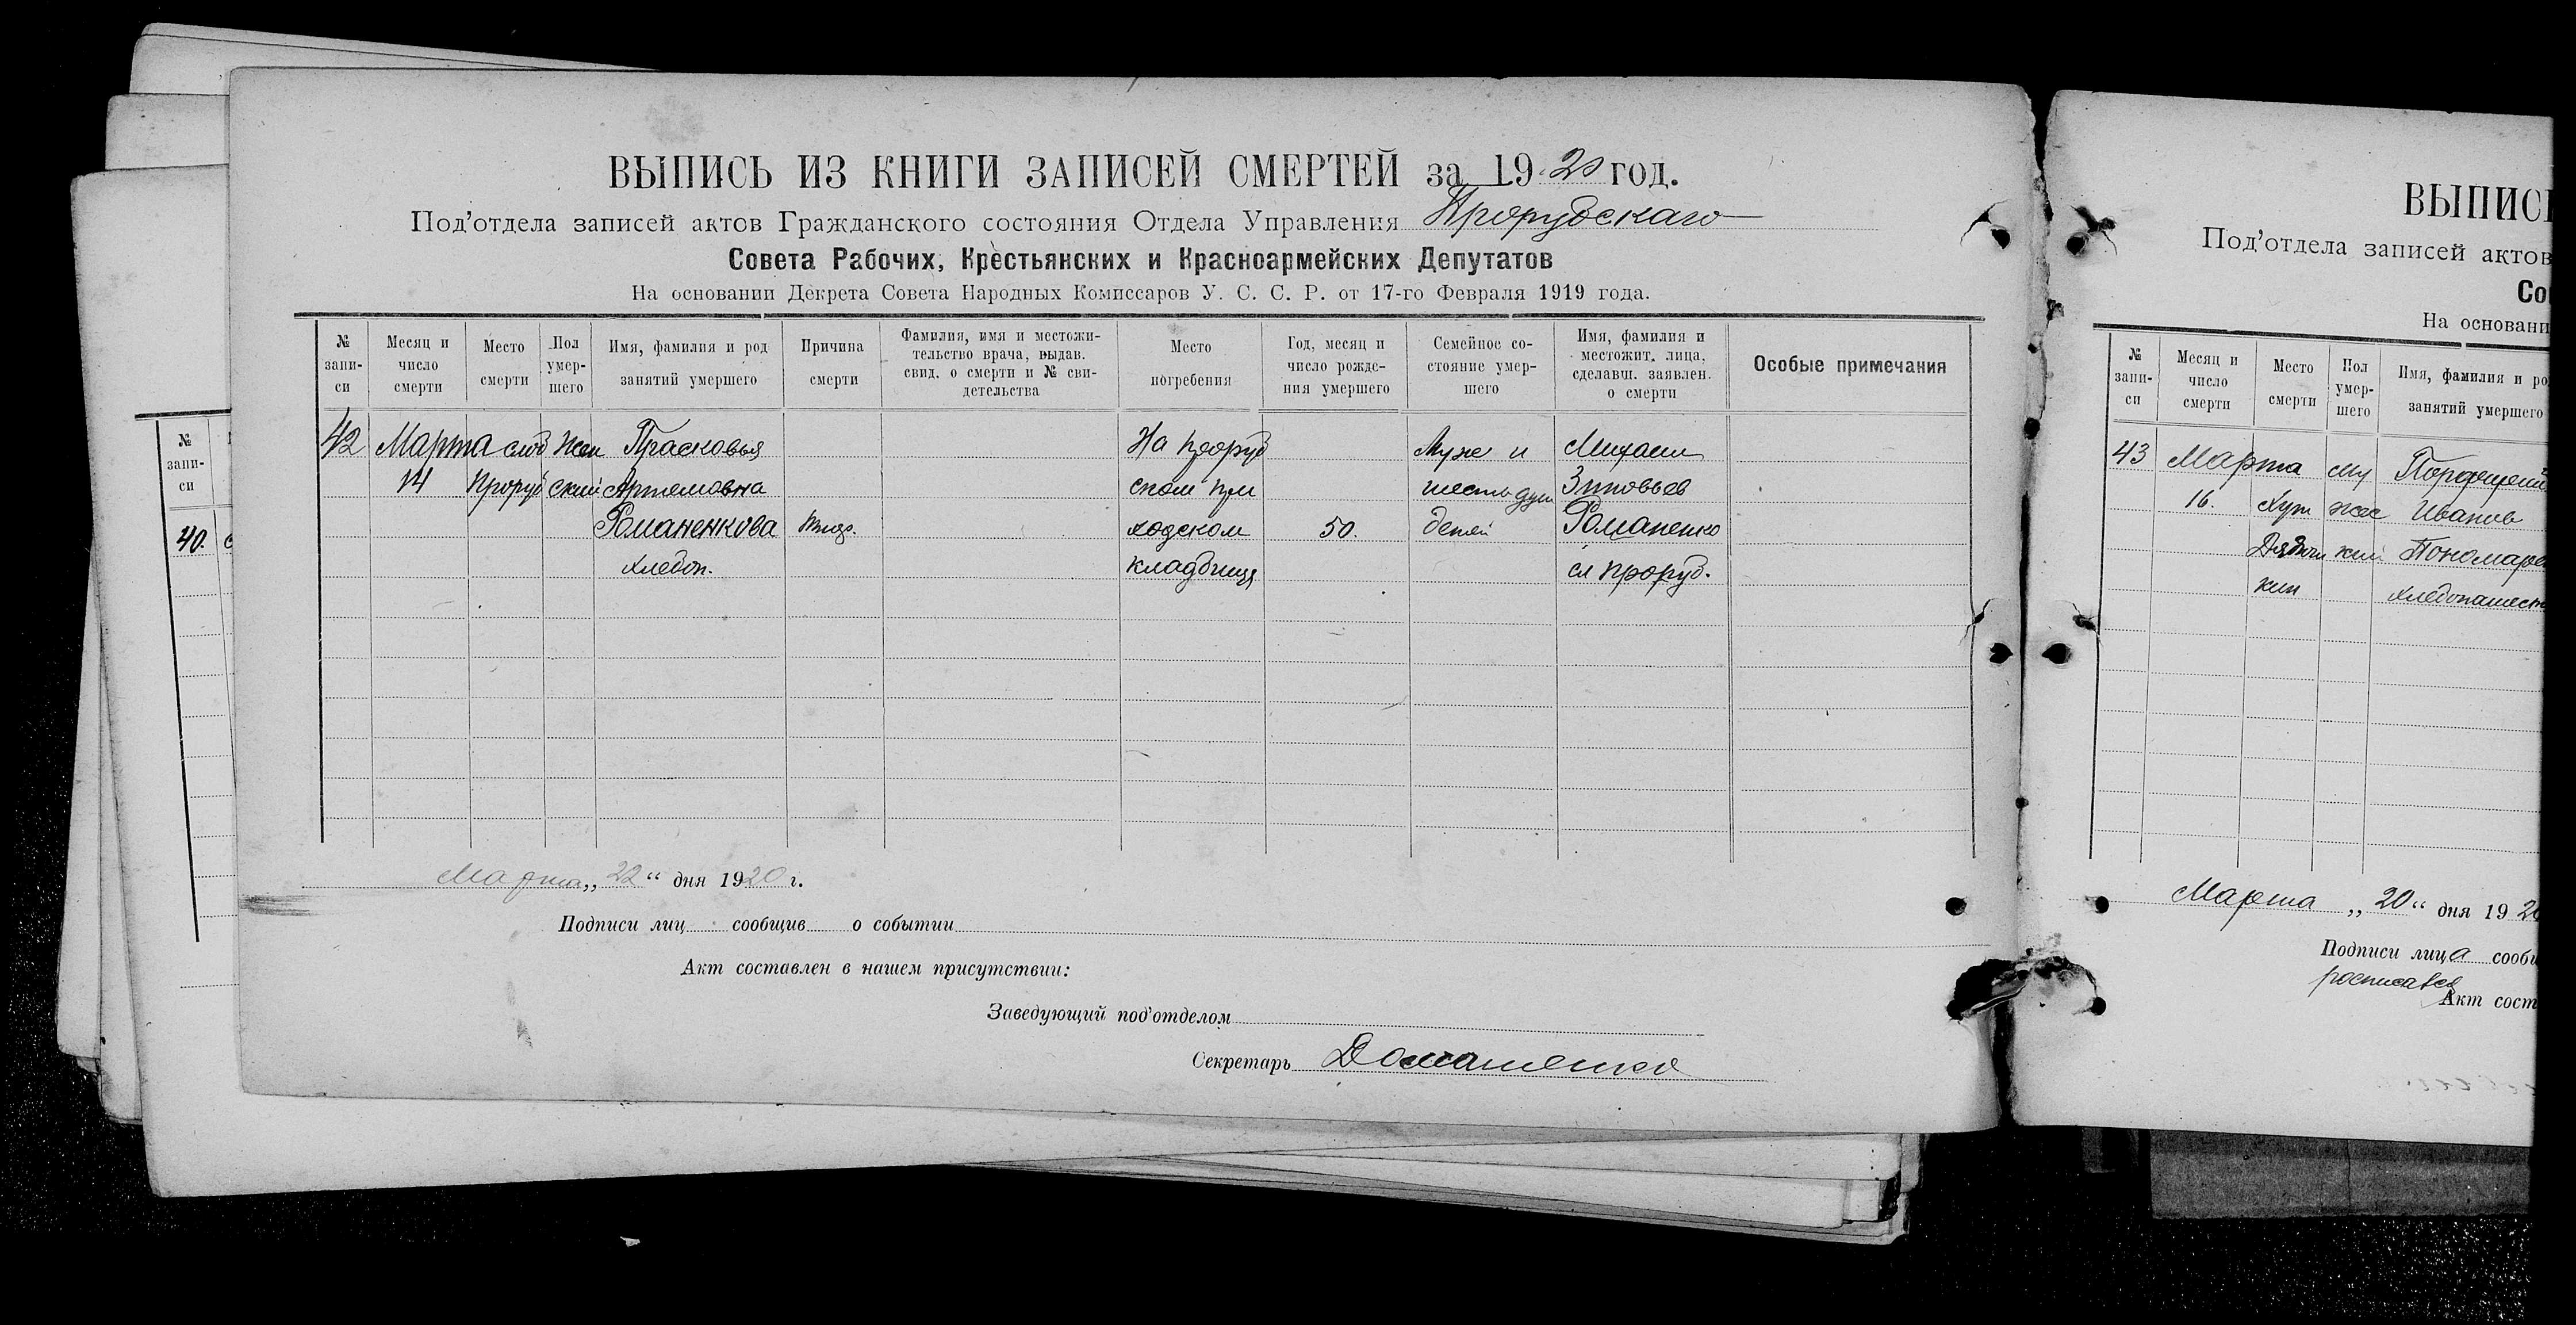 ВЫПИСЬ ИЗ КНИГИ ЗАПИСЕЙ СМЕРТЕЙ за 1920 год.
Под'отдела записей актов Гражданского состояния Отдела Управления Прорубскаго
Совета Рабочих, Крестьянских и Красноармейских Депутатов
На основании Декрета Совета Народных Комиссаров У. С. С. Р. от 17-го Февраля 1919 года.
№ записи
Месяц и число смерти
Место смерти
Пол умершего
Имя, фамилия и род занятий умершего
Причина смерти
Фамилия, имя и местожительство врача, выдав. свид. о смерти и № свидетельства
Место погребения
Год, месяц и число рождения умершего
Семейное состояние умершего
Имя, фамилия и местожит. лица, сделавш. заявлен. о смерти
Особые примечания
42 Марта слоб Жен Прасковья На Проруб Муж и Михаил
14 Проруб ский Артемовна ском при шесть душ Зиновьев
Романенкова ходском 50. детей Романенко
хлебоп. кладбище сл Проруб.
Марта „22“ дня 1920 г.
Подписи лиц сообщив о событии
Акт составлен в нашем присутствии:
Заведующий под'отделом
Секретарь Домашенко
№ записи
40.
ВЫПИСЬ
Под'отдела записей актов
Со
На основани
№ записи
Месяц и число смерти
Место смерти
Пол умершего
Имя, фамилия и ро
занятий умершего
43 Марта му
16. Хут жес Иванов
кий Пономаре
кин хлебопашест
Марта „20“ дня 1920
Подписи лица сооб
росписался
Акт сост